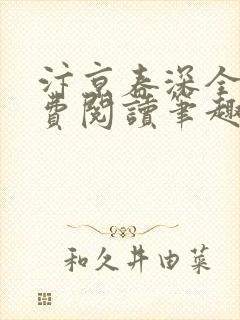 汴京春深全
費閱讀筆趣
和久井由菜